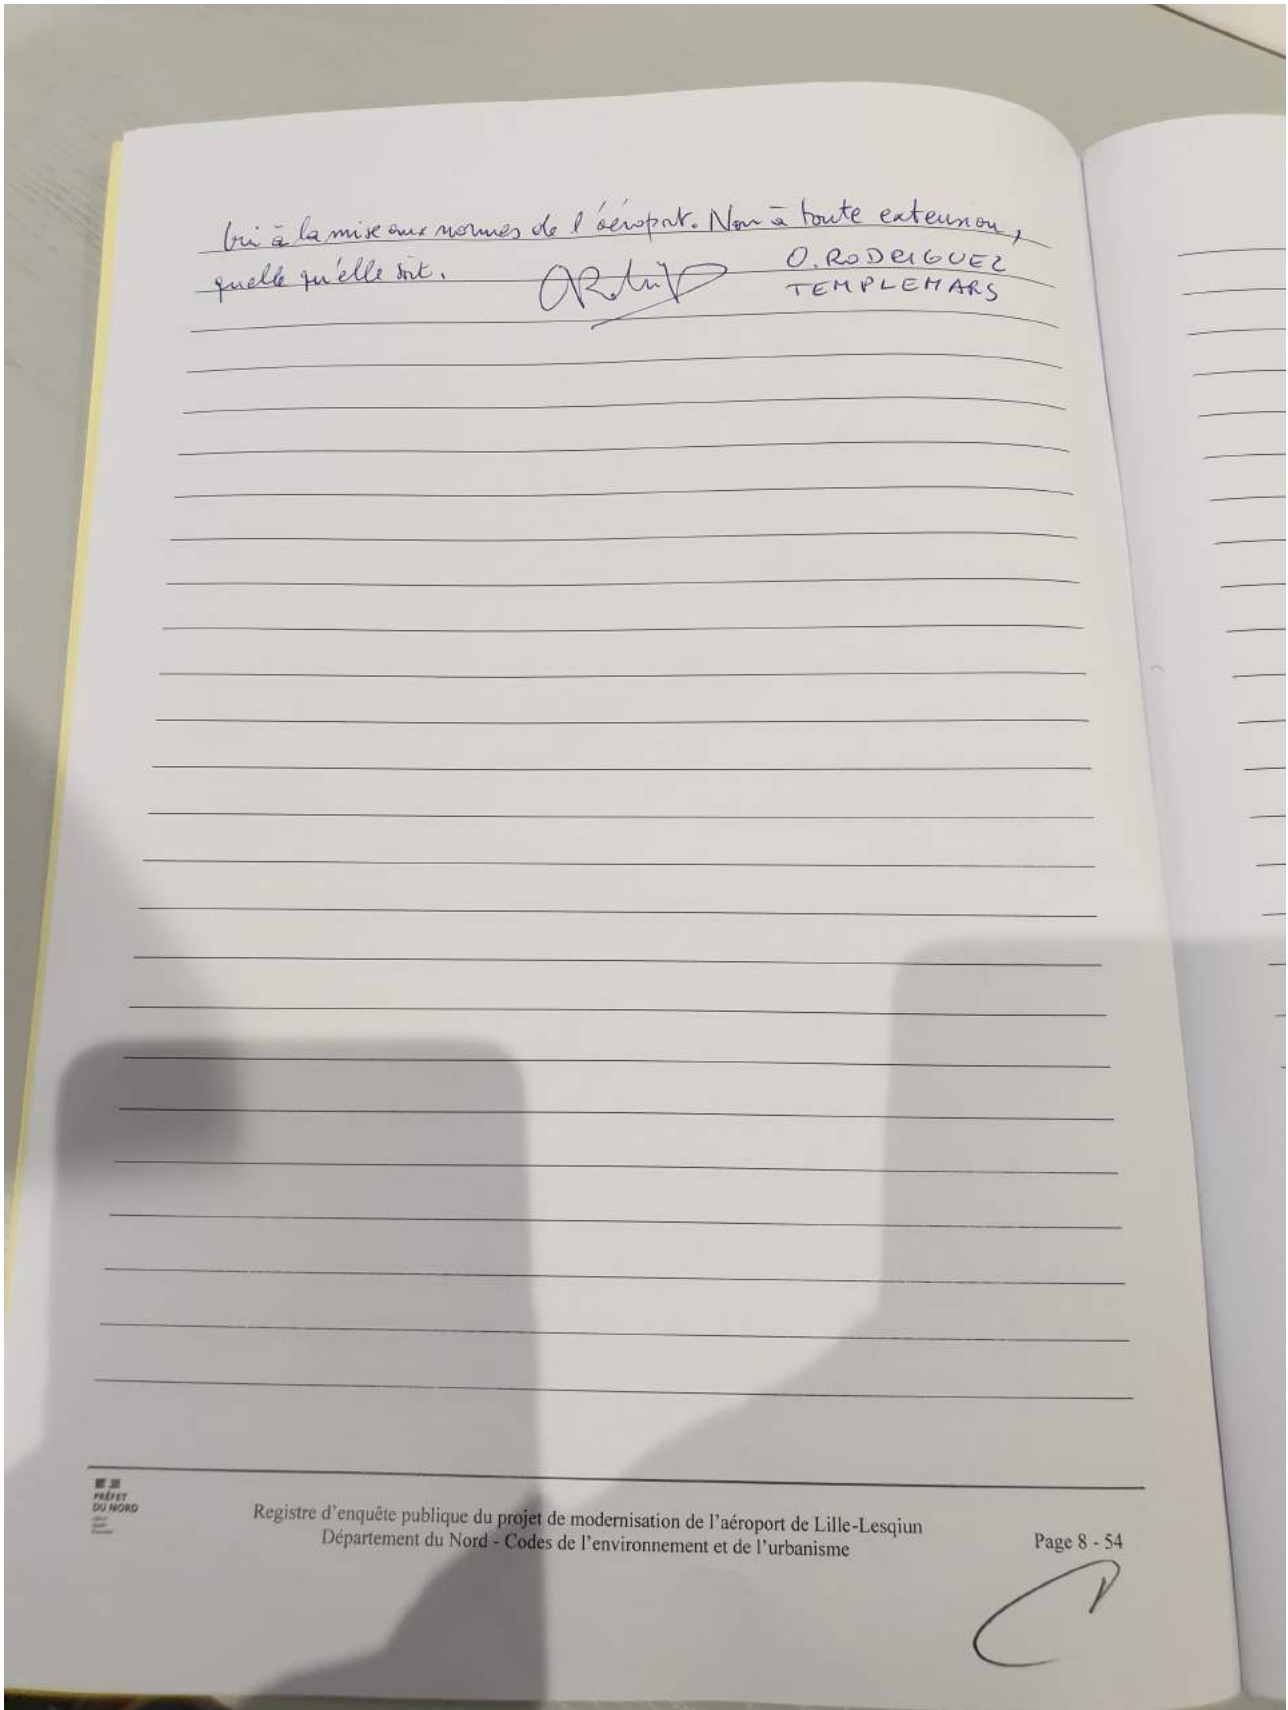 Oui à la mise aux normes de l'aéroport. Non à toute extension,
quelle qu'elle soit.
O. RODRIGUEZ
TEMPLEMARS
PRÉFET
DU NORD
Registre d'enquête publique du projet de modernisation de l'aéroport de Lille-Lesqiun
Département du Nord - Codes de l'environnement et de l'urbanisme
Page 8 - 54